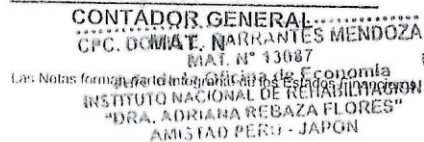 CONTADOR GENERAL
MAT. N
CPC. NARRANTES MENDOZA
MAT. N° 13087
Las Notas forman parte integrante de los Estados Financieros
de Economía
INSTITUTO NACIONAL DE REHABILITACION
"DRA. ADRIANA REBAZA FLORES"
AMISTAD PERU - JAPON